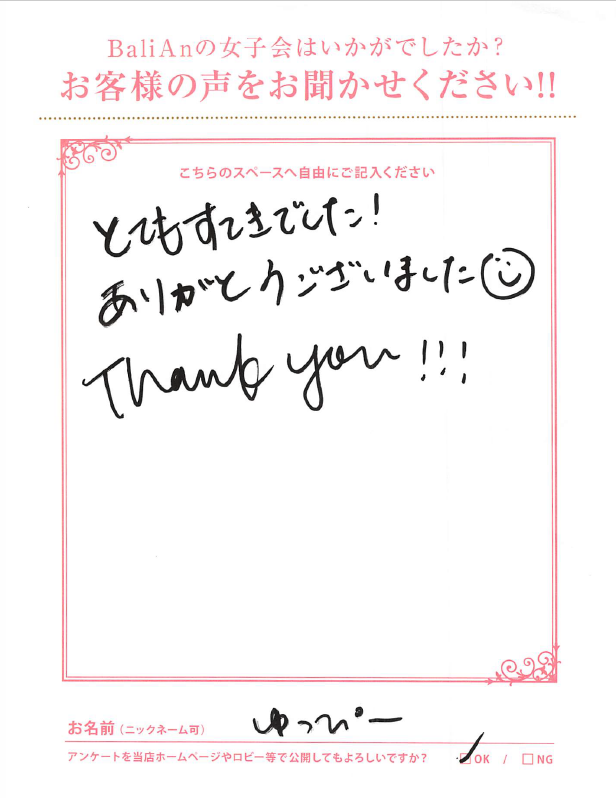 BaliAnの女子会はいかがでしたか?
お客様の声をお聞かせください!!
こちらのスペースへ自由にご記入ください
とてもすてきでした!
ありがとうございました
Thank you !!!
お名前(ニックネーム可) ゆっぴー
アンケートを当店ホームページやロビー等で公開してもよろしいですか? OK / NG